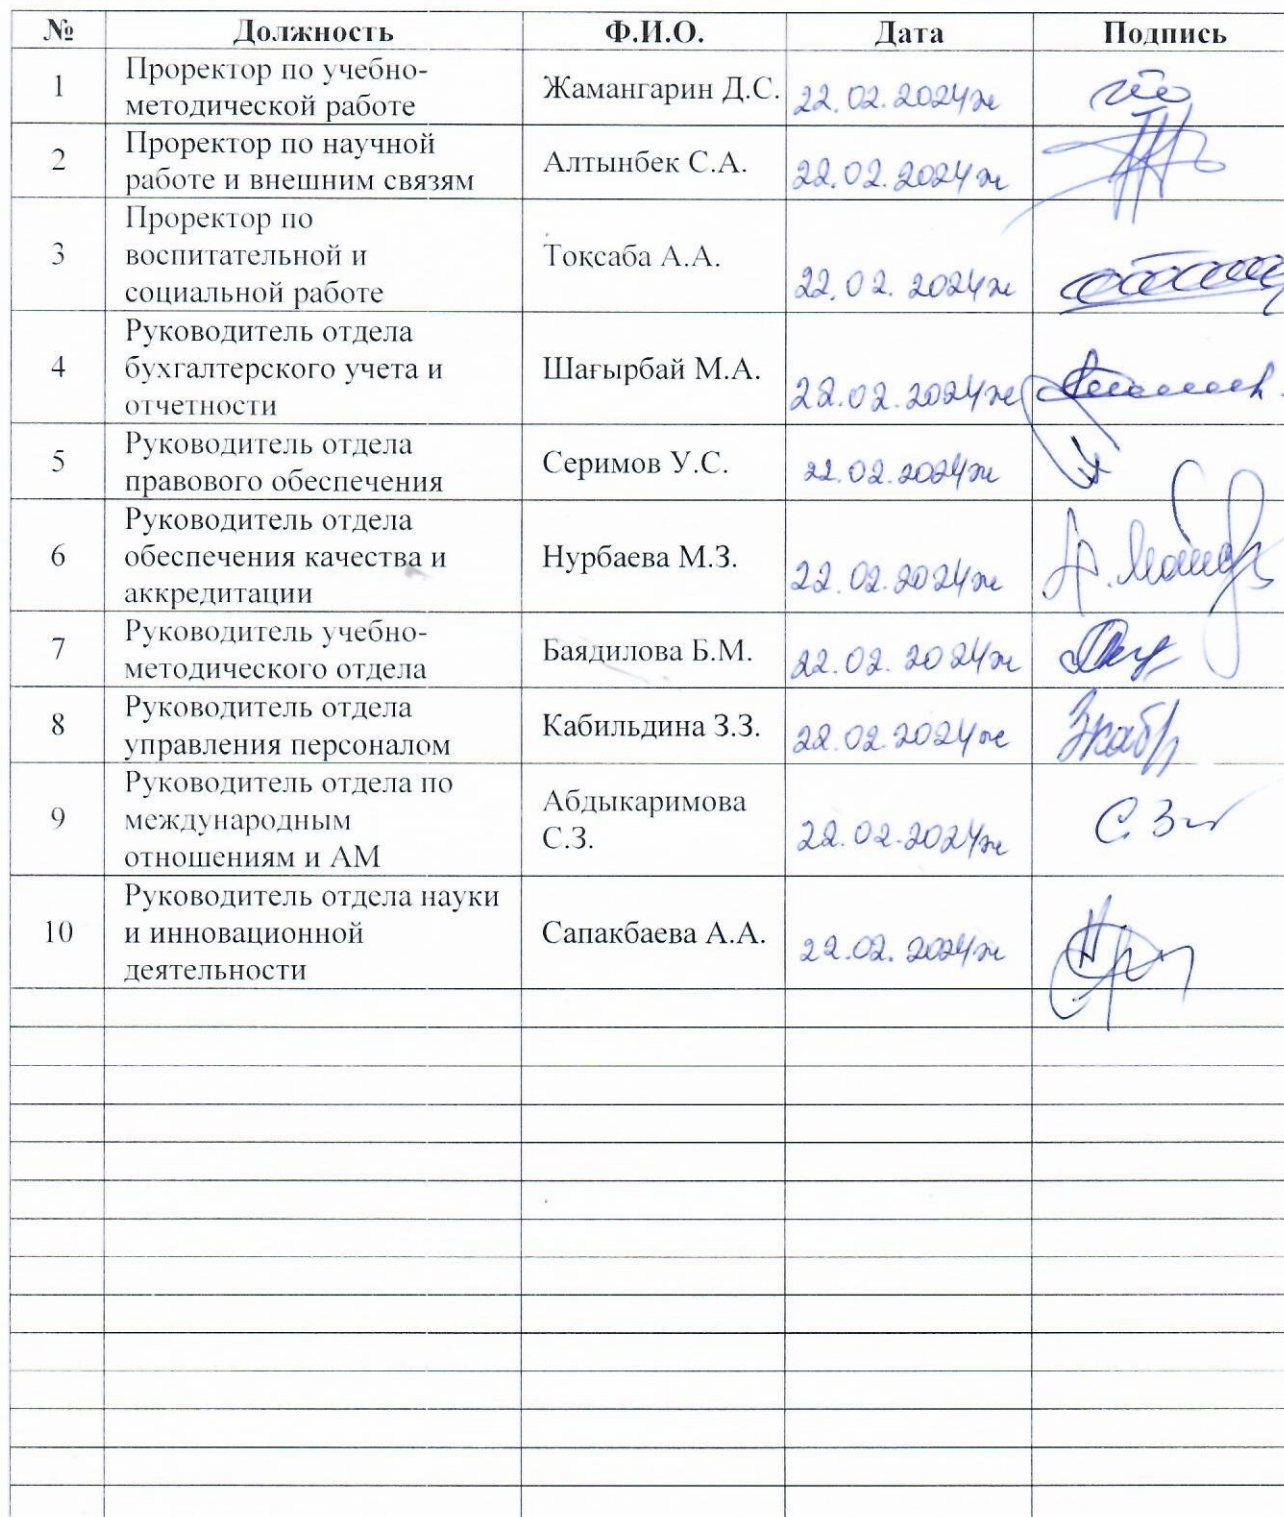 № Должность Ф.И.О. Дата Подпись
1 Проректор по учебно-
методической работе Жамангарин Д.С. 22.02.2024ж
2 Проректор по научной
работе и внешним связям Алтынбек С.А. 22.02.2024ж
3 Проректор по
воспитательной и
социальной работе Тоқсаба А.А. 22.02.2024ж
4 Руководитель отдела
бухгалтерского учета и
отчетности Шағырбай М.А. 22.02.2024ж
5 Руководитель отдела
правового обеспечения Серимов У.С. 22.02.2024ж
6 Руководитель отдела
обеспечения качества и
аккредитации Нурбаева М.З. 22.02.2024ж
7 Руководитель учебно-
методического отдела Баядилова Б.М. 22.02.2024ж
8 Руководитель отдела
управления персоналом Кабильдина З.З. 22.02.2024ж
9 Руководитель отдела по
международным
отношениям и АМ Абдыкаримова
С.З. 22.02.2024ж
10 Руководитель отдела науки
и инновационной
деятельности Сапакбаева А.А. 22.02.2024ж